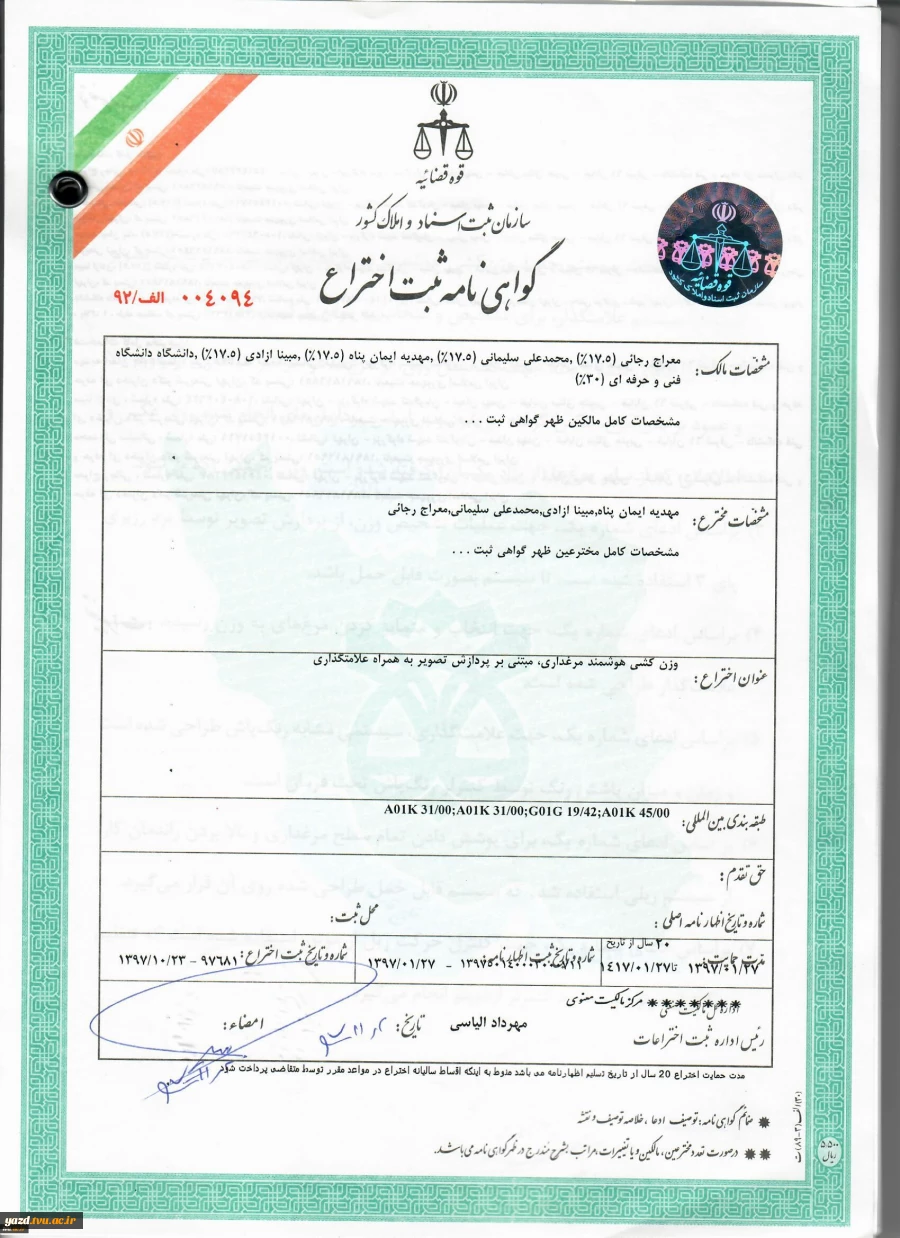 قوه قضائیه
سازمان ثبت اسناد و املاک کشور
گواهی نامه ثبت اختراع
الف/۹۲ ۰۰۴۰۹۴
قوه قضائیه
سازمان ثبت اسناد و املاک کشور
مشخصات مالک: معراج رجائی (۱۷.۵٪) ,محمدعلی سلیمانی (۱۷.۵٪) ,مهدیه ایمان پناه (۱۷.۵٪), مبینا ازادی (۱۷.۵٪) ,دانشگاه دانشگاه
فنی و حرفه ای (۳۰٪)
مشخصات کامل مالکین ظهر گواهی ثبت . . .
مشخصات مخترع: مهدیه ایمان پناه,مبینا ازادی,محمدعلی سلیمانی,معراج رجائی
مشخصات کامل مخترعین ظهر گواهی ثبت . . .
عنوان اختراع: وزن کشی هوشمند مرغداری، مبتنی بر پردازش تصویر به همراه علامتگذاری
طبقه بندی بین‌المللی: A01K 31/00;A01K 31/00;G01G 19/42;A01K 45/00
حق تقدم:
شماره و تاریخ اظهارنامه اصلی: محل ثبت:
۲۰ سال از تاریخ
مدت حمایت: ۱۳۹۷/۰۱/۲۷ تا ۱۴۱۷/۰۱/۲۷
شماره و تاریخ ثبت اظهارنامه: - ۱۳۹۷/۰۱/۲۷
شماره و تاریخ ثبت اختراع: ۹۷۶۸۱ - ۱۳۹۷/۱۰/۲۳
مرکز مالکیت معنوی
رئیس اداره ثبت اختراعات مهرداد الیاسی تاریخ: امضاء:
مدت حمایت اختراع 20 سال از تاریخ تسلیم اظهارنامه می باشد منوط به اینکه اقساط سالیانه اختراع در مواعد مقرر توسط متقاضی پرداخت شود
✱ ضمائم گواهی نامه: توصیف ادعا، خلاصه توصیف و نقشه
✱✱ درصورت تعدد مخترعین، مالکین و یا تغییرات، مراتب بشرح مندرج در ظهر گواهی نامه می‌باشد.
۵۵۰۰ ریال
yazd.tvu.ac.ir